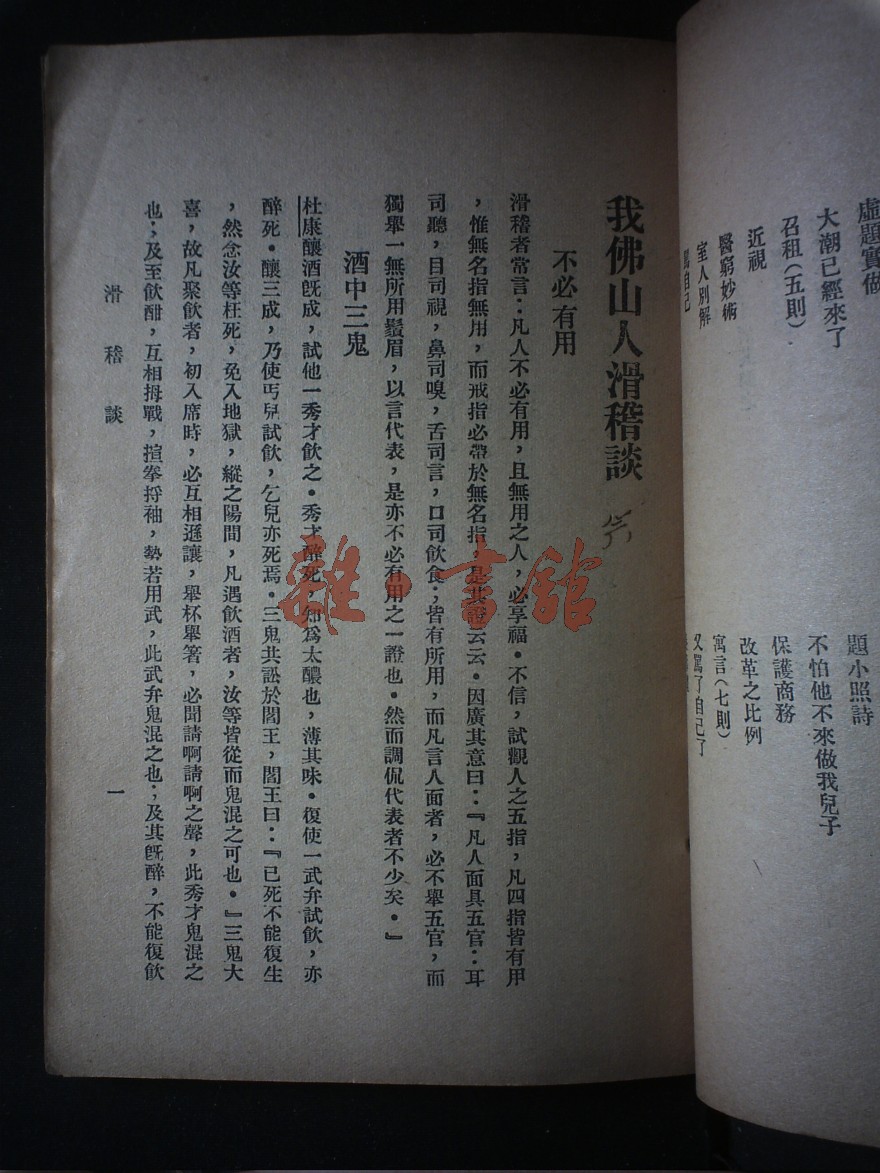 虛題實做
大潮已經來了
召租(五則)
近視
醫窮妙術
室人別解
罵自己
題小照詩
不怕他不來做我兒子
保護商務
改革之比例
寓言(七則)
又罵了自己了
我佛山人滑稽談
不必有用
滑稽者常言:凡人不必有用,且無用之人,必享福。不信,試觀人之五指,凡四指皆有用
,惟無名指無用,而戒指必帶於無名指,是其證云云。因廣其意曰:『凡人面具五官:耳
司聽,目司視,鼻司嗅,舌司言,口司飲食;皆有所用,而凡言人面者,必不舉五官,而
獨舉一無所用鬚眉,以言代表,是亦不必有用之一證也。然而調侃代表者不少矣。』
酒中三鬼
杜康釀酒旣成,試他一秀才飲之。秀才醉死,知爲太醲也,薄其味。復使一武弁試飲,亦
醉死。釀三成,乃使丐兒試飲,乞兒亦死焉。三鬼共訟於閻王,閻王曰:『已死不能復生
,然念汝等枉死,免入地獄,縱之陽間,凡遇飲酒者,汝等皆從而鬼混之可也。』三鬼大
喜,故凡聚飲者,初入席時,必互相遜讓,舉杯舉箸,必聞請啊請啊之聲,此秀才鬼混之
也;及至飲酣,互相拇戰,揎拳捋袖,勢若用武,此武弁鬼混之也;及其旣醉,不能復飲
滑稽談
一
雜·書館